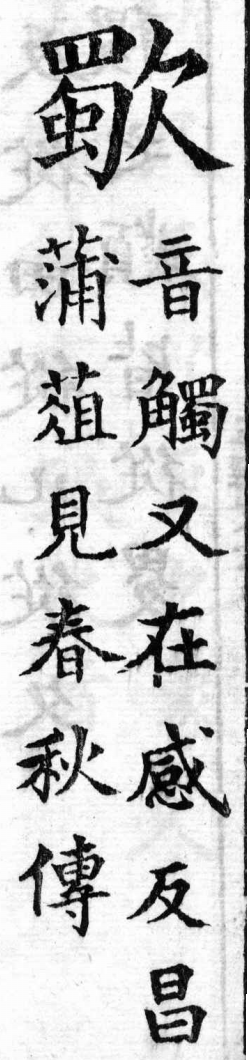 歜
音觸又在感反昌
蒲葅見春秋傳